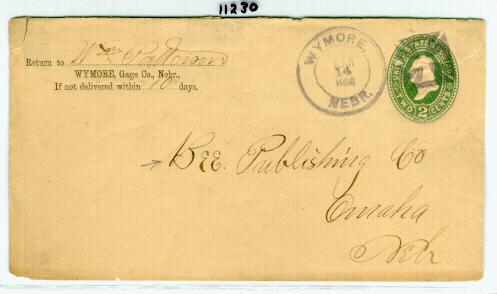 11230
Return to Wm Patterson
WYMORE, Gage Co., Nebr.,
If not delivered within 10 days.
WYMORE,
14
NEBR.
UNITED STATES
TWO 2 CENTS
Bee. Publishing Co
Omaha
Neb